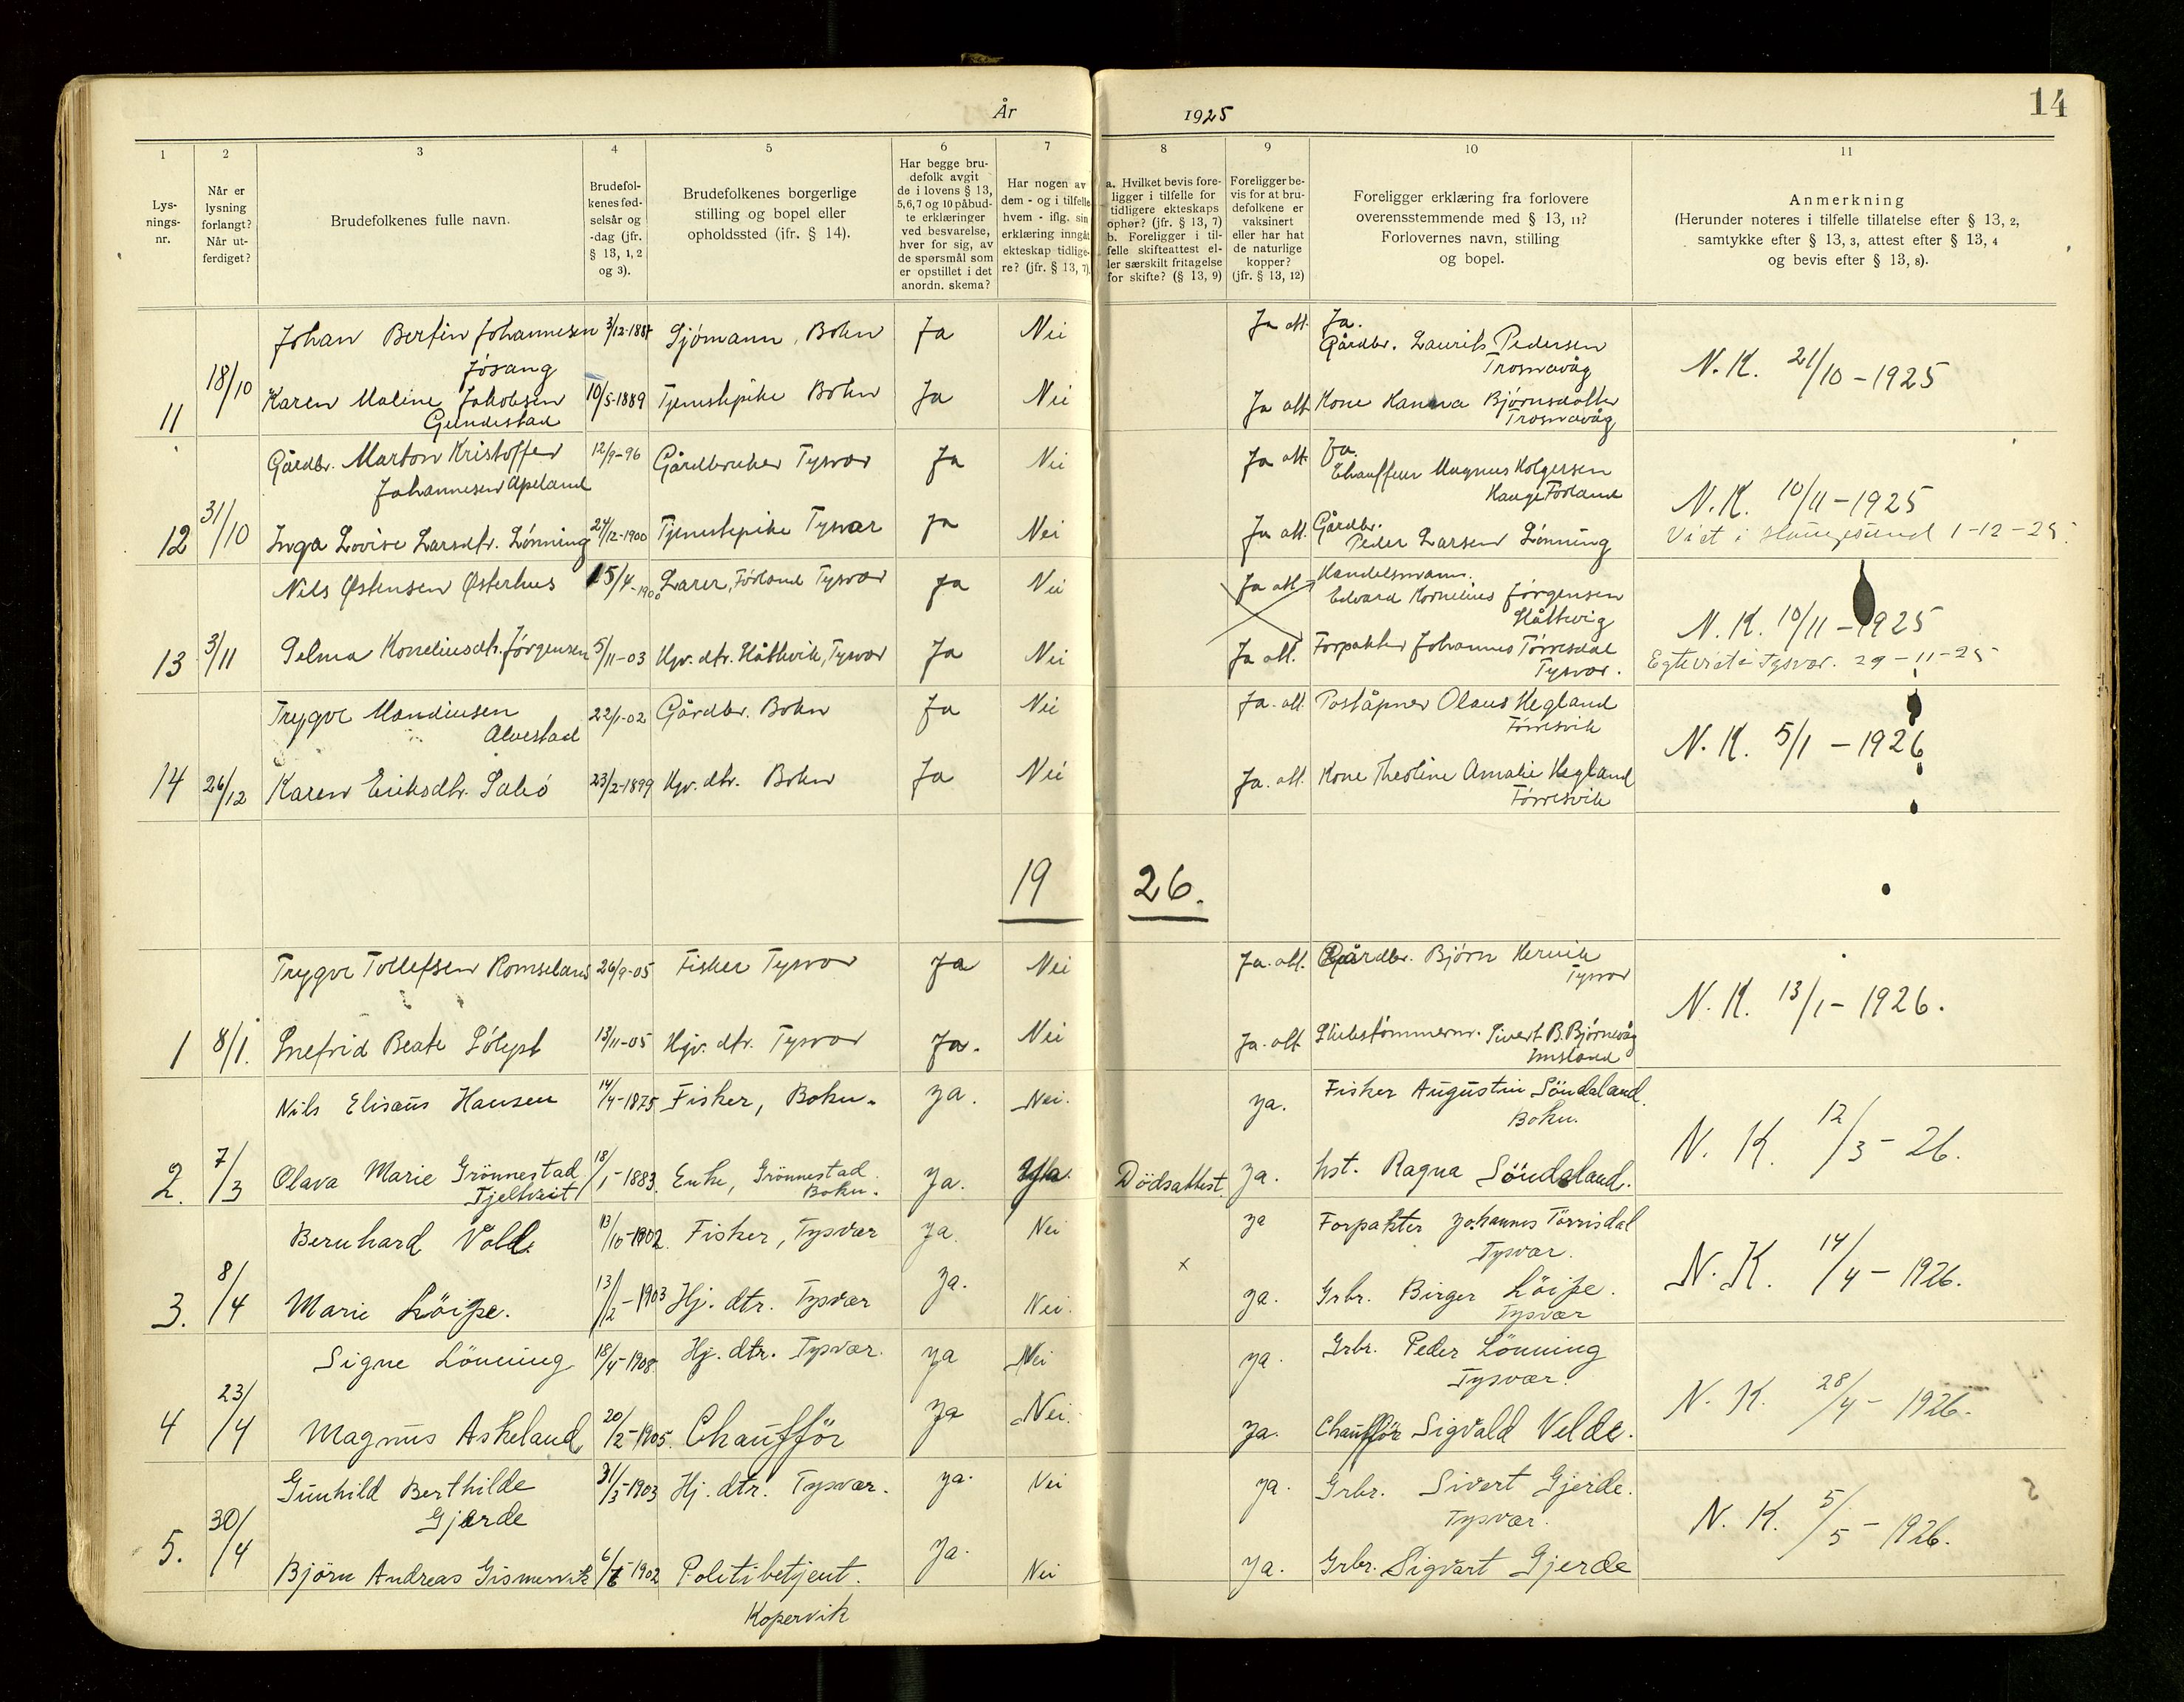 År 1925
14
1
2
3
4
5
6
7
8
9
10
11
Lys-
nings-
nr.
Når er
lysning
forlangt?
Når ut-
ferdiget?
Brudefolkenes fulle navn.
Brudefol-
kenes fød-
selsår og
-dag (jfr.
§ 13, 1, 2
og 3).
Brudefolkenes borgerlige
stilling og bopel eller
opholdssted (ifr. § 14).
Har begge bru-
defolk avgit
de i lovens § 13,
5,6,7 og 10 påbud-
te erklæringer
ved besvarelse,
hver for sig, av
de spørsmål som
er opstillet i det
anordn. skema?
Har nogen av
dem - og i tilfelle
hvem - iflg. sin
erklæring inngåt
ekteskap tidlige-
re? (jfr. § 13, 7).
a. Hvilket bevis fore-
ligger i tilfelle for
tidligere ekteskaps
ophør? (jfr. § 13, 7)
b. Foreligger i til-
felle skifteattest el-
ler særskilt fritagelse
for skifte? (§ 13, 9)
Foreligger be-
vis for at bru-
defolkene er
vaksinert
eller har hat
de naturlige
kopper?
(jfr. § 13, 12)
Foreligger erklæring fra forlovere
overensstemmende med § 13, 11?
Forlovernes navn, stilling
og bopel.
Anmerkning
(Herunder noteres i tilfelle tillatelse efter § 13, 2,
samtykke efter § 13, 3, attest efter § 13, 4
og bevis efter § 13, 8).
Johan Bertin Johannesen 3/12-1887 Sjömann, Bokn Ja Nei Ja att. Ja.
Jösang Gårdbr. Laurits Pedersen
Trosnavåg
11 18/10 Karen Maline Jakobsen 10/5-1889 Tjenestepike Bokn Ja Nei Ja att. Kone Hanna Björnsdatter N.K. 21/10-1925
Gundestad Trosnavåg
Gårdbr. Marton Kristoffer 12/9-96 Gårdbruker Tysvær Ja Nei Ja att. Ja.
Johannesen Apeland Chauffeur Magnus Holgersen
Hauge Förland
12 31/10 Inga Lovise Larsdtr. Lönning 24/12-1900 Tjenestepike Tysvær Ja Nei Ja att. Gårdbr. N.K. 10/11-1925
Peder Larsen Lönning Viet i Haugesund 1-12-25.
Nils Østensen Østerhus 15/4-1900 Lærer, Förland Tysvær Ja Nei Ja att. Handelsmann.
Edvard Kornelius Jörgensen
Håttevig
13 3/11 Selma Korneliusdtr. Jörgensen 5/11-03 Hjv. dtr. Håttevik, Tysvær Ja Nei Ja att. Forpakter Johannes Törresdal N.K. 10/11-1925
Tysvær. Egteviet i Tysvær. 29-11-25
Trygve Mandiusen 22/1-02 Gårdbr. Bokn Ja Nei Ja. att. Poståpner Olaus Hegland
Alvestad Törresvik
14 26/12 Karen Eriksdtr. Salvö 23/2-1899 Hjv. dtr. Bokn Ja Nei Ja. att. Kone Theoline Amalie Hegland N.K. 5/1-1926
Törresvik
19 26.
Trygve Tollefsen Romseland 26/9-05 Fisker Tysvær Ja Nei Ja. att. Gårdbr. Björn Hervik
Tysvær
1 8/1. Snefrid Beate 13/11-05 Hjv. dtr. Tysvær Ja. Nei Ja. att. Skibstömmerm. Sivert B. Björnevåg N.K. 13/1-1926.
Imsland
Nils Elisæus Hansen 14/4-1875 Fisker, Bokn. Ja. Nei. Ja. Fisker Augustin Söndaland.
Bokn.
2. 7/3 Olava Marie Grönnestad 18/1-1883. Enke, Grönnestad Ja. Ja. Dödsattest. Ja. hst. Ragna Söndaland. N. K. 12/3-26.
Fjeltveit Bokn.
Bernhard Vold. 13/10-1902. Fisker, Tysvær Ja. Nei Ja Forpakter Johannes Törrisdal
Tysvær.
3. 8/4 Marie Löipe. 13/12-1903 Hj. dtr. Tysvær Ja. Nei. x Ja. Grbr. Birger Löipe. N.K. 14/4-1926.
Tysvær
Signe Lönning 18/4-1908. Hj. dtr. Tysvær. Ja Nei Ja. Grbr. Peder Lönning
Tysvær.
4 23/4 Magnus Askeland 20/2-1905. Chaufför Ja Nei. Ja. Chaufför Sigvald Velde. N. K. 28/4-1926.
Gunhild Berthilde 31/3-1903 Hj. dtr. Tysvær. Ja. Nei Ja. Grbr. Sivert Gjerde.
Gjerde Tysvær.
5. 30/4 Björn Andreas Gismervik 6/6-1902 Politibetjent. Ja. Nei Ja. Grbr. Sigvart Gjerde N. K. 5/5-1926.
Kopervik